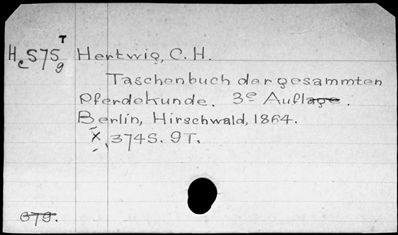 T
HeS75g Hertwig, C. H.
Taschenbuch der gesammten
Pferdekunde. 3e Auflage.
Berlin, Hirschwald, 1864.
X, 374S. 9T.
679.